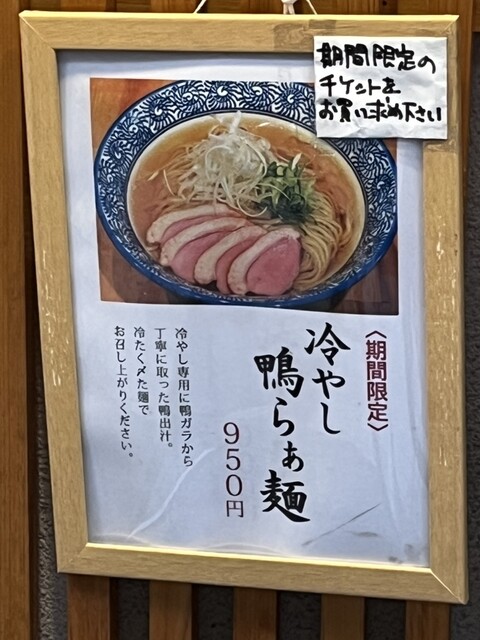 期間限定の
チケットを
お買い求め下さい
〈期間限定〉
冷やし
鴨らぁ麺
950円
冷やし専用に鴨ガラから
丁寧に取った鴨出汁。
冷たく〆た麺で
お召し上がりください。